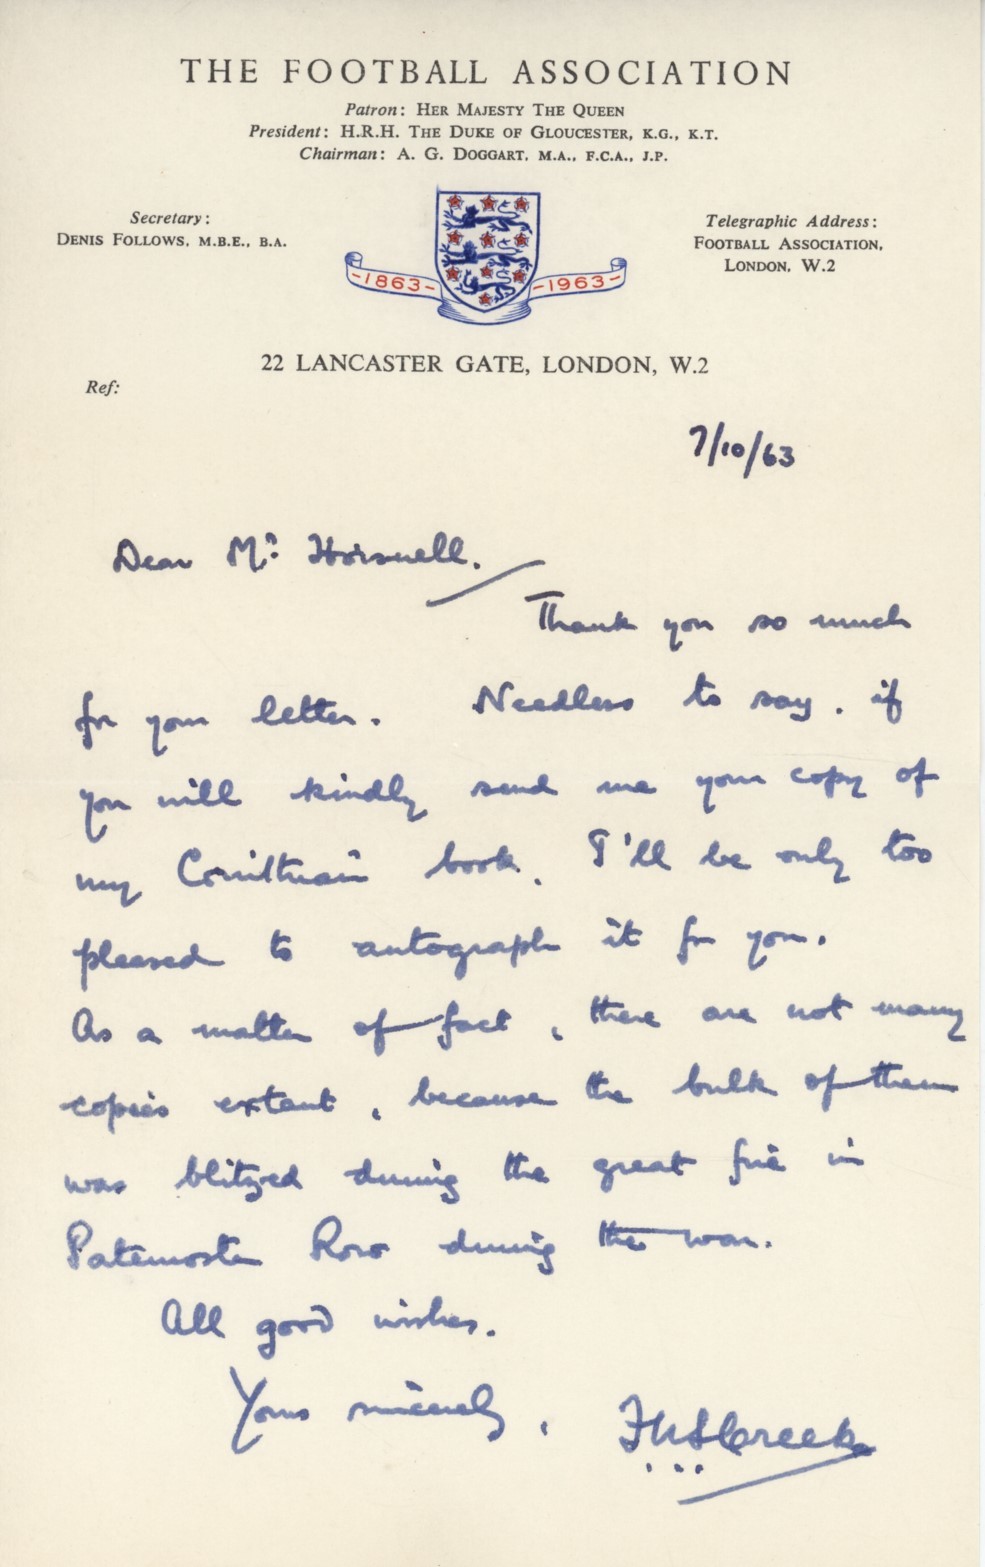 THE FOOTBALL ASSOCIATION
Patron: HER MAJESTY THE QUEEN
President: H.R.H. THE DUKE OF GLOUCESTER, K.G., K.T.
Chairman: A. G. DOGGART, M.A., F.C.A., J.P.
Secretary:
DENIS FOLLOWS, M.B.E., B.A.
Telegraphic Address:
FOOTBALL ASSOCIATION,
LONDON, W.2
-1863- -1963-
22 LANCASTER GATE, LONDON, W.2
Ref:
7/10/63
Dear Mr. Horsnell,
Thank you so much
for your letter. Needless to say, if
you will kindly send me your copy of
my Corinthian book, I'll be only too
pleased to autograph it for you.
As a matter of fact, there are not many
copies extant, because the bulk of them
was blitzed during the great fire in
Paternoster Row during the war.
All good wishes.
Yours sincerely, F.N.S. Creek